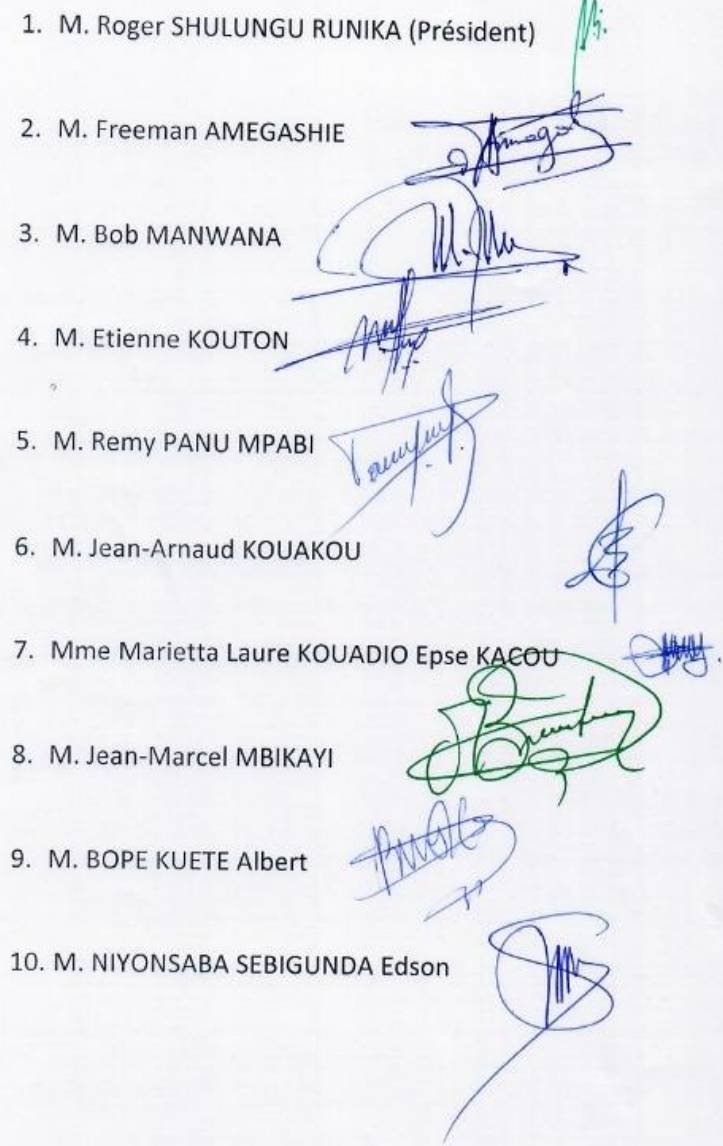 1. M. Roger SHULUNGU RUNIKA (Président)
2. M. Freeman AMEGASHIE
3. M. Bob MANWANA
4. M. Etienne KOUTON
5. M. Remy PANU MPABI
6. M. Jean-Arnaud KOUAKOU
7. Mme Marietta Laure KOUADIO Epse KACOU
8. M. Jean-Marcel MBIKAYI
9. M. BOPE KUETE Albert
10. M. NIYONSABA SEBIGUNDA Edson